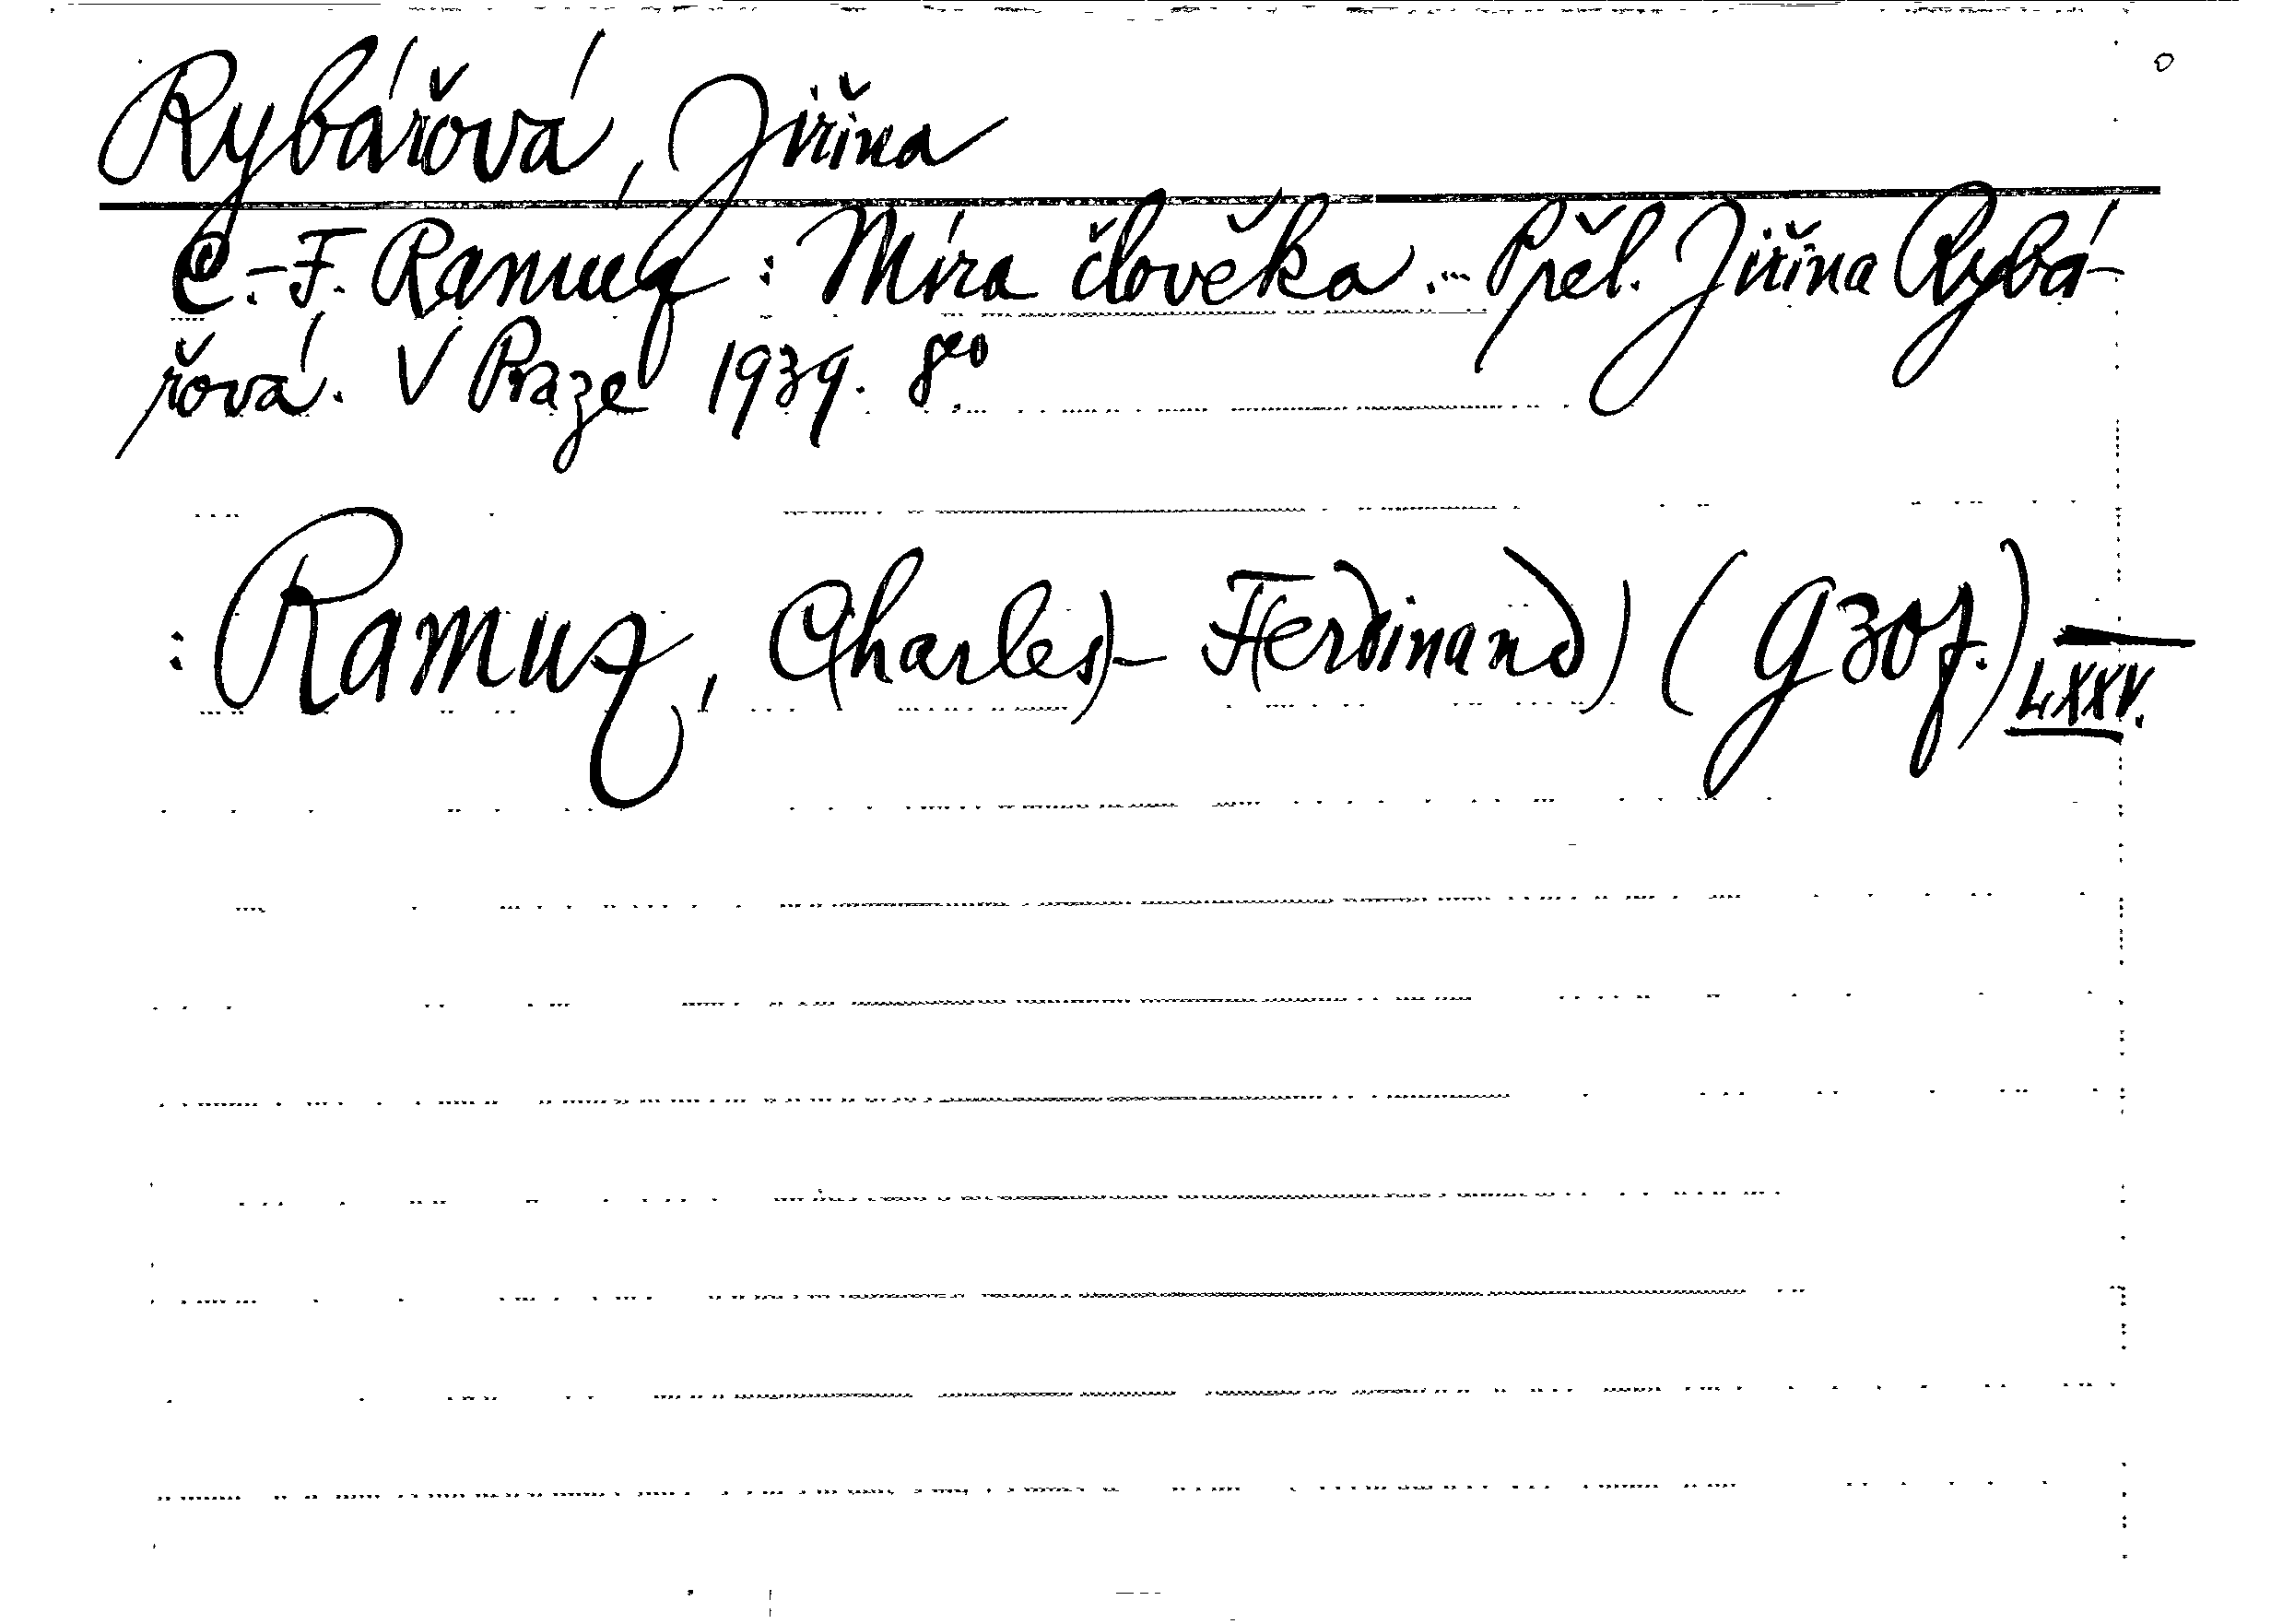 Rybářová, Jiřina
C.-F. Ramuz : Míra člověka ... Přel. Jiřina Rybá-
řová. V Praze 1939. 8°
: Ramuz, C(harles)- F(erdinand) (G 30f.)
LXXV.